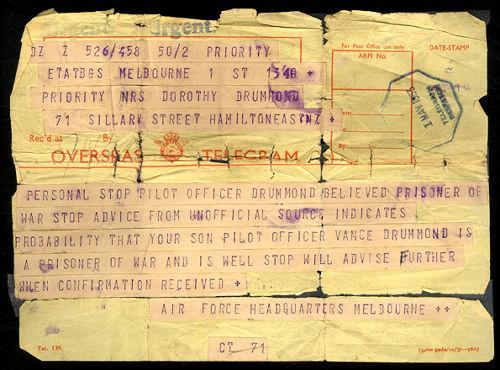 Urgent
DZ Z 526/458 50/2 PRIORITY
For Post Office use only
DATE-STAMP
ARM No.
ETATBGS MELBOURNE 1 ST 1340 +
PRIORITY MRS DOROTHY DRUMMOND
71 SILLARY STREET HAMILTONEAST NZ +
1 MAY 1952
Rec'd at By
OVERSEAS TELEGRAM
PERSONAL STOP PILOT OFFICER DRUMMOND BELIEVED PRISONER OF
WAR STOP ADVICE FROM UNOFFICIAL SOURCE INDICATES
PROBABILITY THAT YOUR SON PILOT OFFICER VANCE DRUMMOND IS
A PRISONER OF WAR AND IS WELL STOP WILL ADVISE FURTHER
WHEN CONFIRMATION RECEIVED +
AIR FORCE HEADQUARTERS MELBOURNE ++
CT 71
Tel. 139.